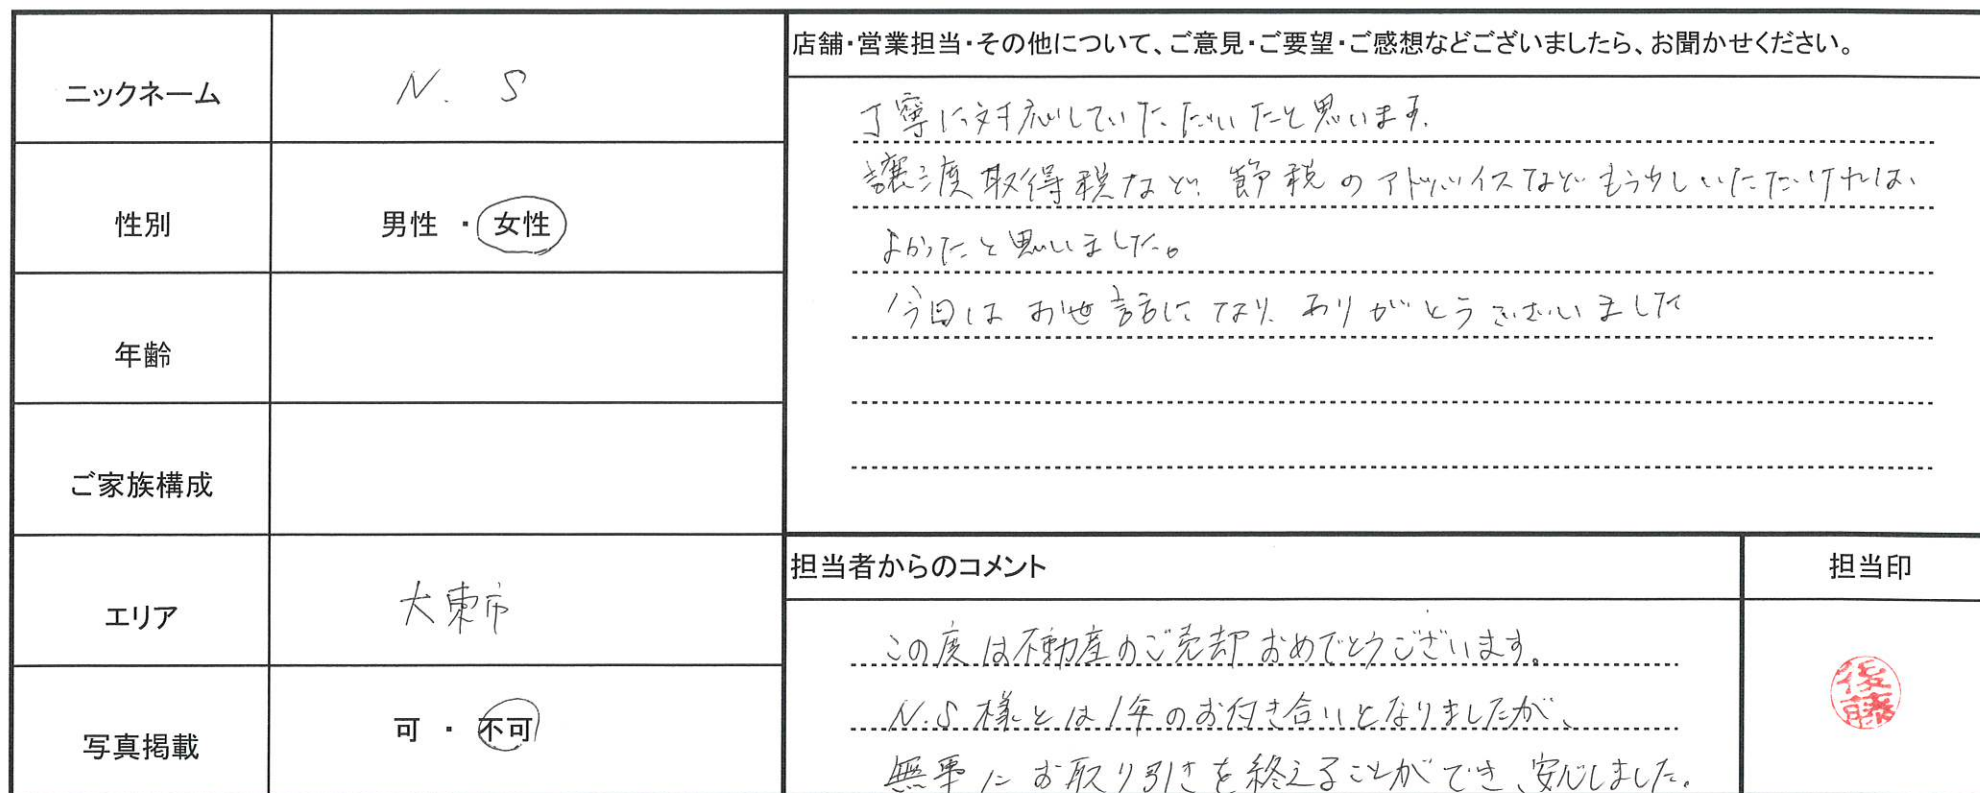 ニックネーム
N. S
性別
男性 ・ 女性
年齢
ご家族構成
エリア
大東市
写真掲載
可 ・ 不可
店舗・営業担当・その他について、ご意見・ご要望・ご感想などございましたら、お聞かせください。
丁寧に対応していただいたと思います。
譲渡取得税など、節税のアドバイスなどもう少しいただければ、
よかったと思いました。
今回はお世話になり、ありがとうございました
担当者からのコメント
この度は不動産のご売却おめでとうございます。
N.S様とは1年のお付き合いとなりましたが、
無事にお取り引きを終えることができ、安心しました。
担当印
後藤